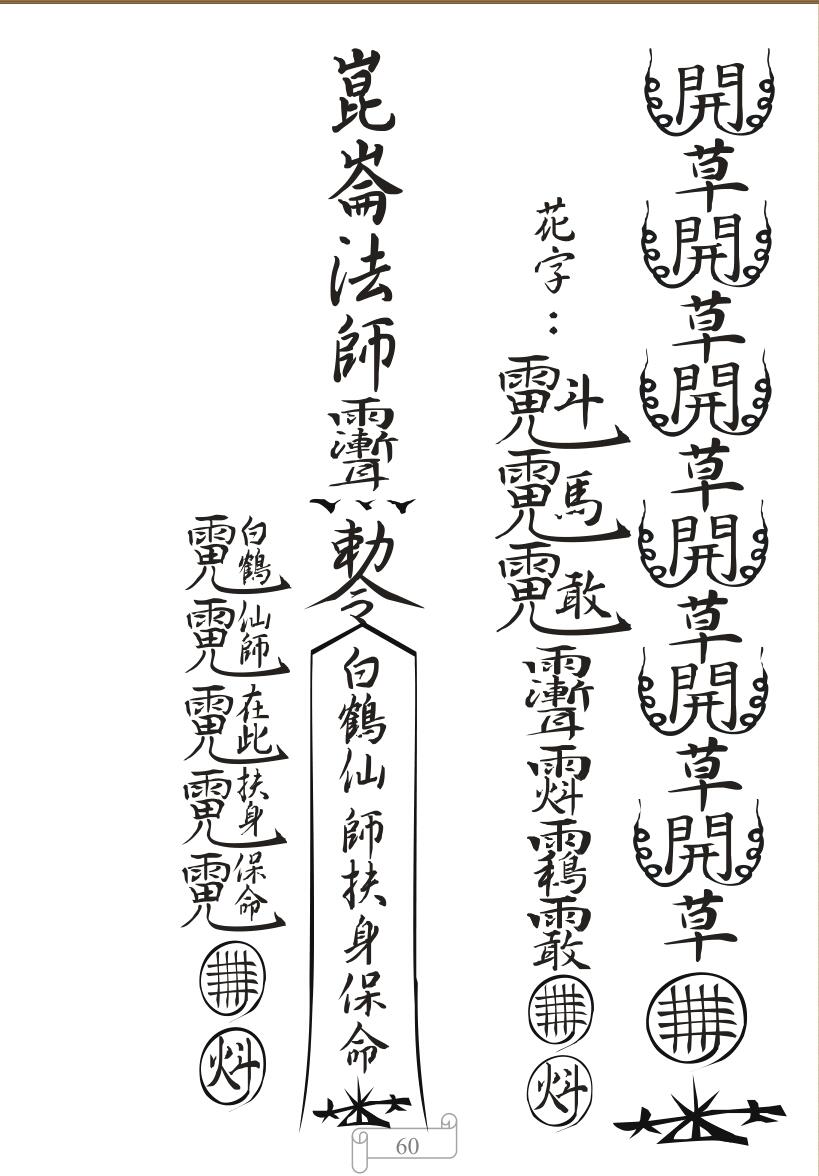 開草開草開草開草開草開草
花字：
斗馬敢
炓
崑崙法師
勅令
白鶴仙師扶身保命
白鶴仙師在此扶身保命
炓
60